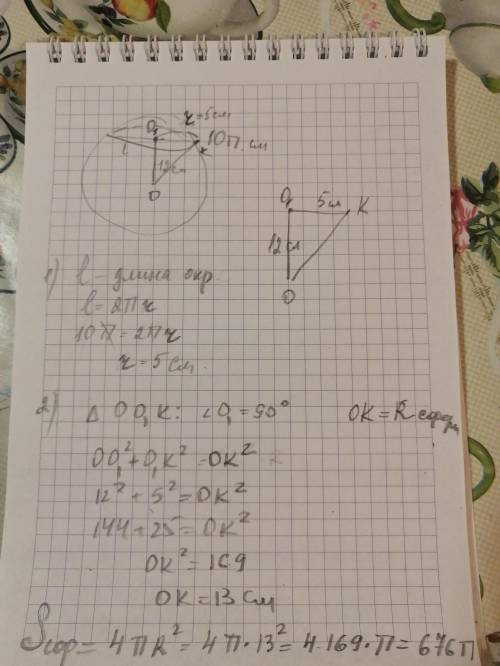 O₁ r=5см
10π см
l
12см
O
O₁ 5см K
12см
O
1) l – длина окр.
l=2πr
10π=2πr
r=5см
2) △OO₁K: ∠O₁=90° OK=R сферы
OO₁²+O₁K²=OK²
12²+5²=OK²
144+25=OK²
OK²=169
OK=13см
Sсф=4πR²=4π·13²=4·169·π=676π